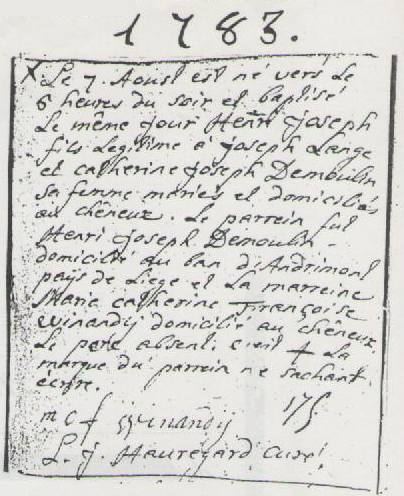 1783.
X Le 7. Aoust est né vers le
6 heures du soir et baptisé
le même jour Henri Joseph
fils Legitime a Joseph Lange
et catherine Joseph Demoulin
sa femme mariés et domiciliés
au chêneux. Le parrein fut
Henri Joseph Demoulin -
domicilié au ban d'Andrimont
pays de Liege et La marreine
Marie catherine Françoise
Winandij domicilié au chêneux
Le pere absent. c'est † La
marque du parrein ne sachant
écrire.
m c f Winandij
L. J. Hauregard curé